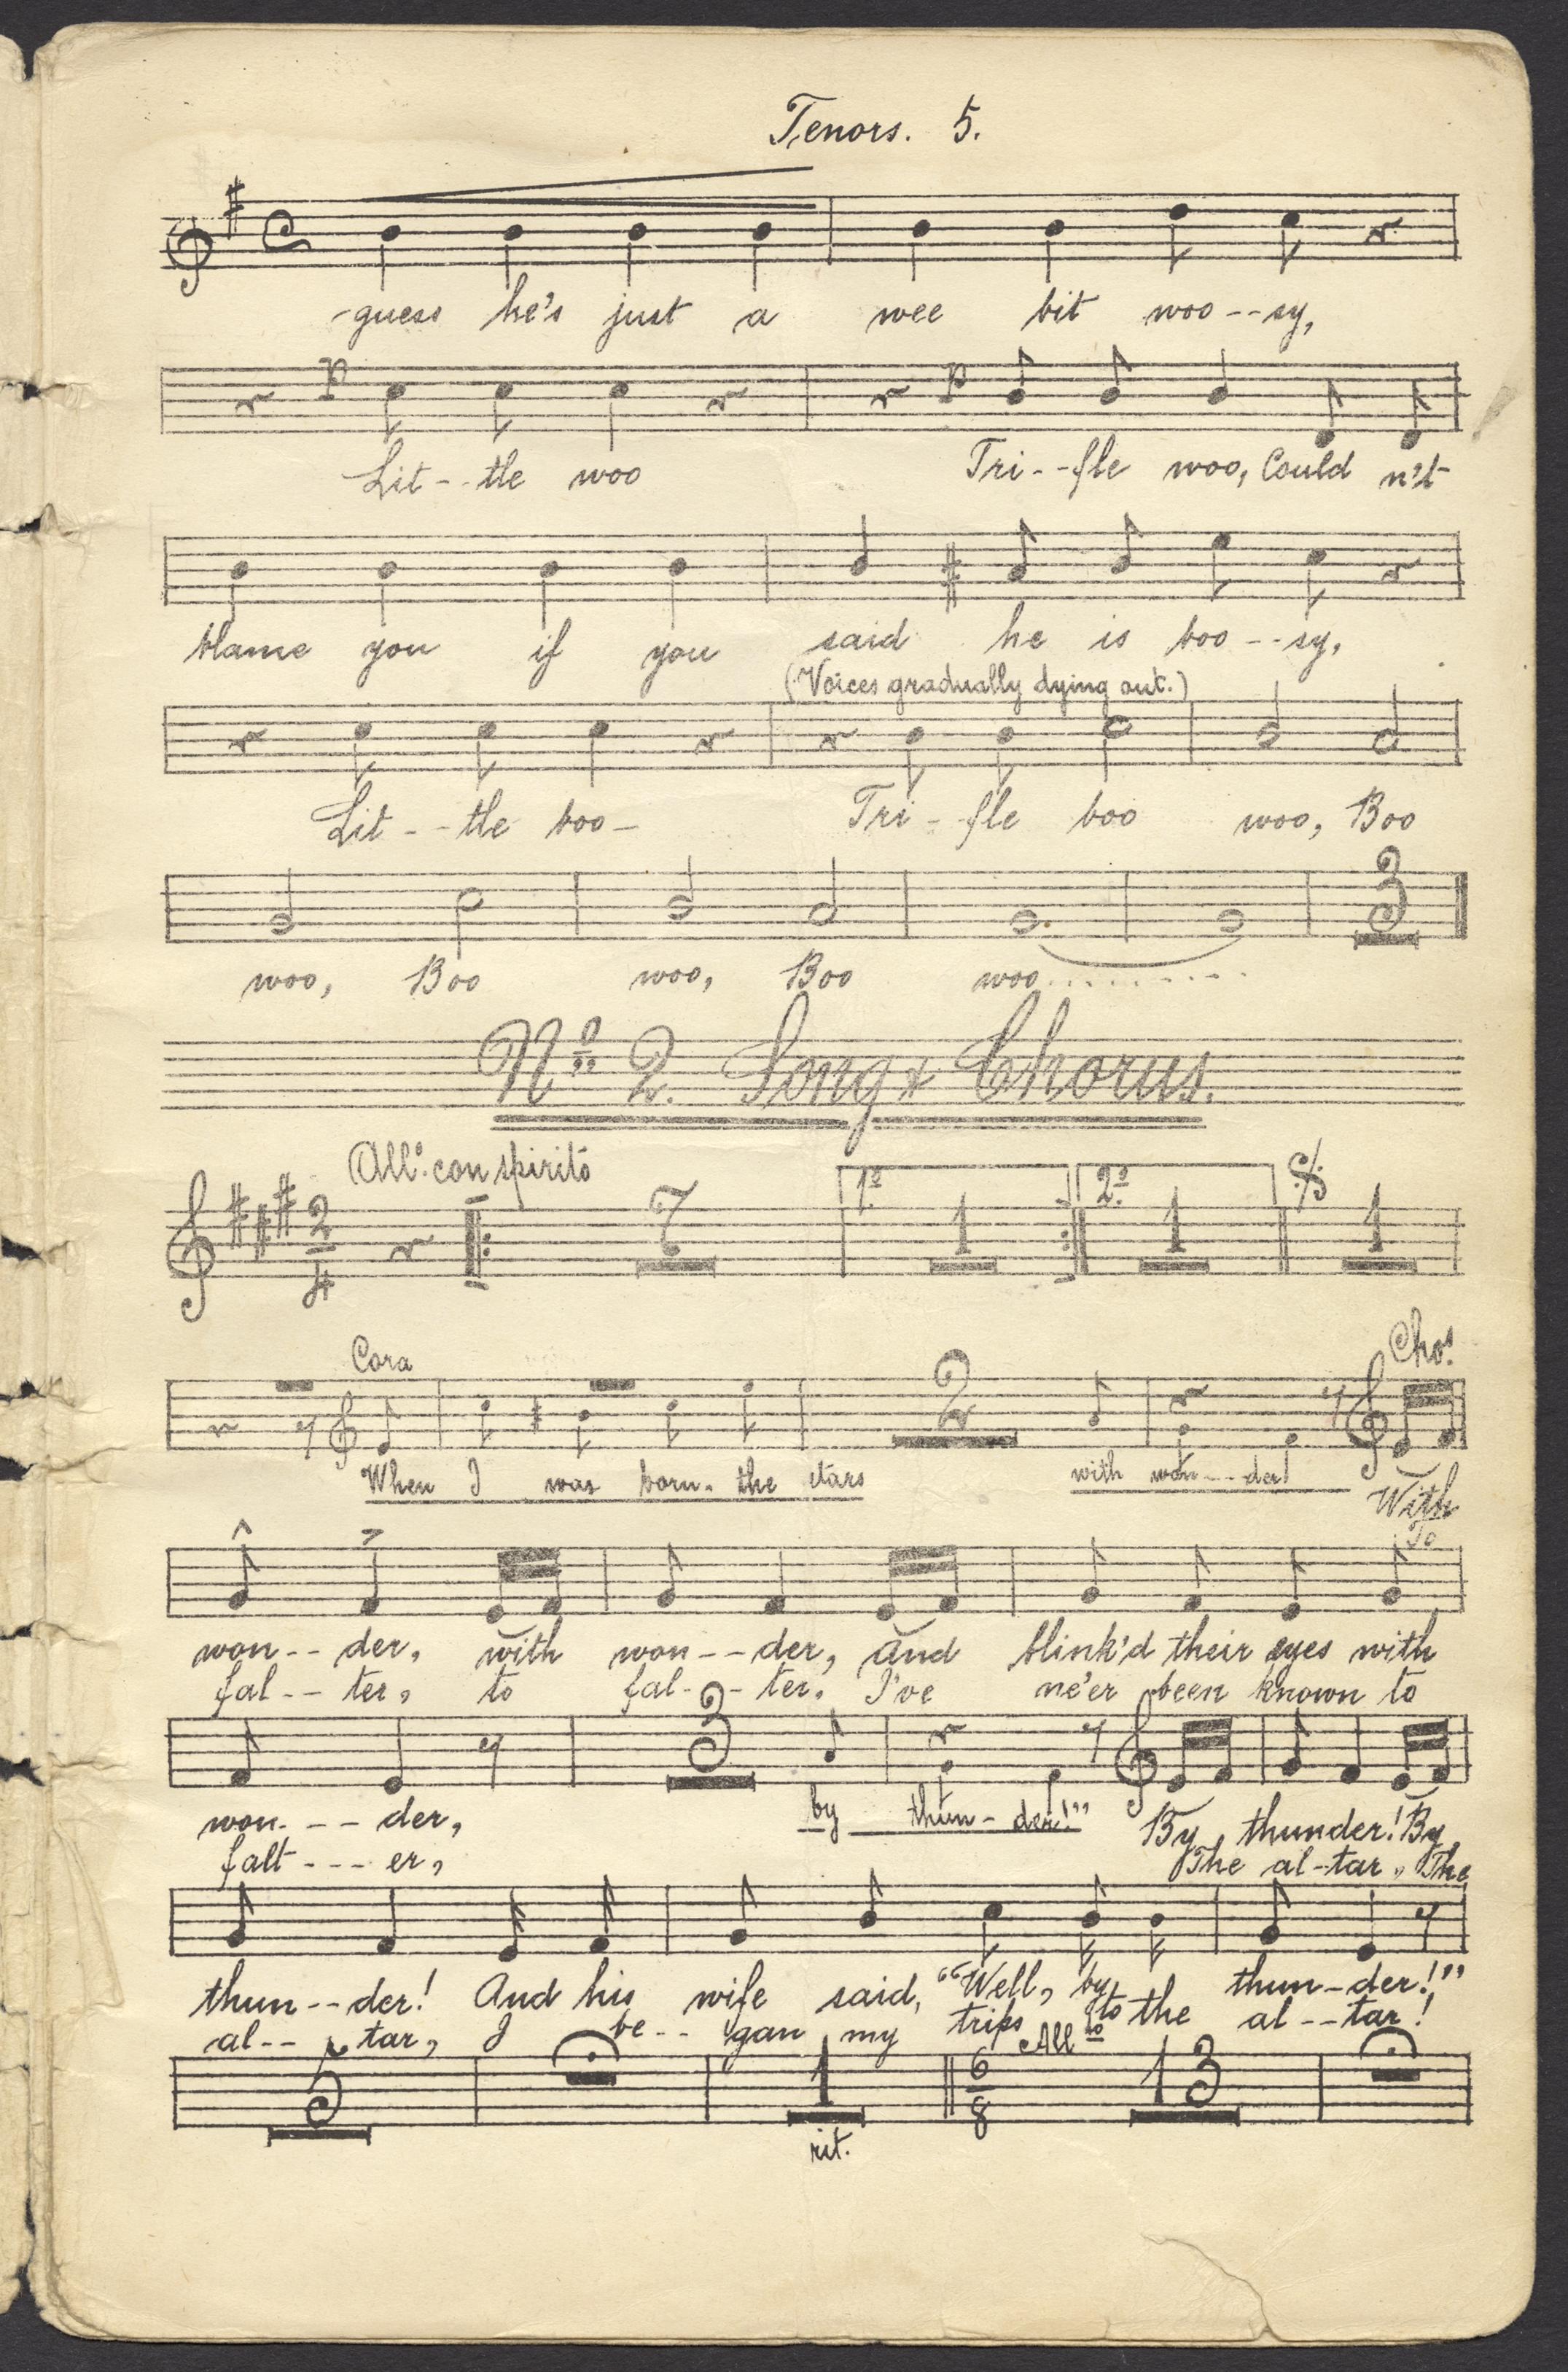 Tenors. 5.
-guess he's just a wee bit woo--sy,
p p
Lit--tle woo Tri--fle woo, Could n't
blame you if you said he is boo--sy,
(Voices gradually dying out.)
Lit--tle boo- Tri--fle boo woo, Boo
3
woo, Boo woo, Boo woo.........
No. 2. Song & Chorus.
Allo. con spirito
2/4 7 1o. 1 2o. 1 1
Cora Chos.
2
When I was born. the stars with won---der With
To
won--der, with won--der, and blink'd their eyes with
fal--ter, to fal--ter, I've ne'er been known to
3
won.---der, by thun-der!" By, thunder! By,
falt---er, The al-tar, The
thun--der! And his wife said, "Well, by the thun-der!"
al--tar, I be--gan my trips to the al--tar!
Allo
5 1 6/8 13
rit.